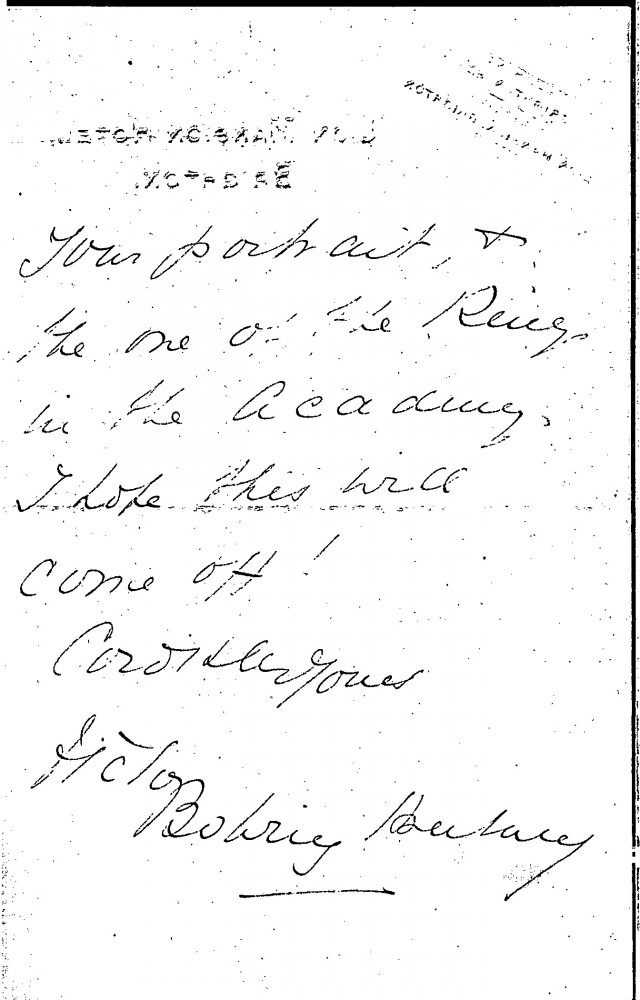 Your portrait, &
the one of the King
in the Academy.
I hope this will
come off!
Cordially Yours
Victor